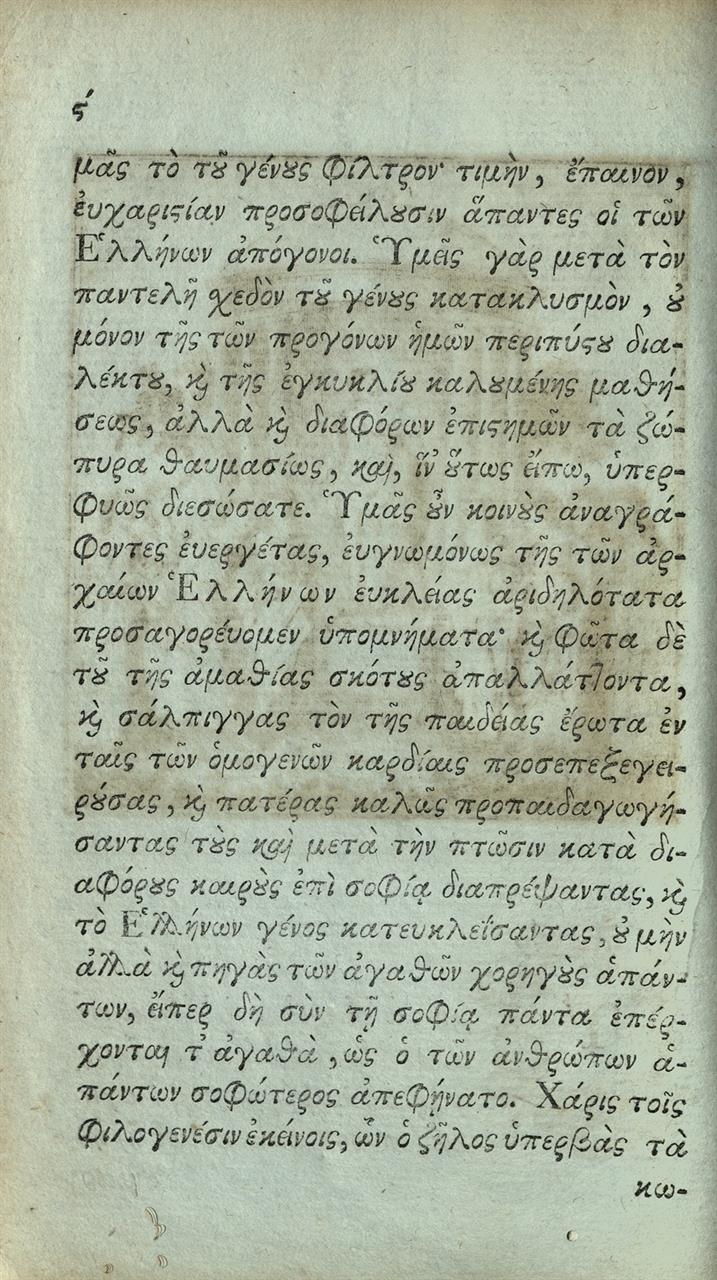 ϛ´
μᾶς τὸ τȣ͂ γένȣς φίλτρον· τιμὴν, ἔπαινον,
ἐυχαριϛίαν προσοφείλȣσιν ἅπαντες οἱ τῶν
Ἑλλήνων ἀπόγονοι. Ὑμεῖς γὰρ μετὰ τὸν
παντελῆ χεδὸν τȣ͂ γένȣς κατακλυσμὸν, ȣ̓
μόνον τῆς τῶν προγόνων ἡμῶν περιπύϛȣ δια-
λέκτȣ, ϗ̀ τῆς ἐγκυκλίȣ καλȣμένης μαθή-
σεως, ἀλλὰ ϗ̀ διαφόρων ἐπιϛημῶν τὰ ζώ-
πυρα θαυμασίως, καὶ, ἵν' ȣ̔́τως εἴπω, ὑπερ-
φυῶς διεσώσατε. Ὑμᾶς ȣ̓͂ν κοινȣ̀ς ἀναγρά-
φοντες ἐυεργέτας, ἐυγνωμόνως τῆς τῶν ἀρ-
χαίων Ἑλλήνων ἐυκλείας ἀριδηλότατα
προσαγορέυομεν ὑπομνήματα· ϗ̀ φῶτα δὲ
τȣ͂ τῆς ἀμαθίας σκότȣς ἀπαλλάττοντα,
ϗ̀ σάλπιγγας τὸν τῆς παιδείας ἔρωτα ἐν
ταῖς τῶν ὁμογενῶν καρδίαις προσεπεξεγει-
ρȣ́σας, ϗ̀ πατέρας καλῶς προπαιδαγωγή-
σαντας τȣ̀ς καὶ μετὰ τὴν πτῶσιν κατὰ δι-
αφόρȣς καιρȣ̀ς ἐπὶ σοφίᾳ διαπρέψαντας, ϗ̀
τὸ Ἑλλήνων γένος κατευκλεΐσαντας, ȣ̓ μὴν
ἀλλὰ ϗ̀ πηγὰς τῶν ἀγαθῶν χορηγȣ̀ς ἁπάν-
των, εἴπερ δὴ σὺν τῇ σοφίᾳ πάντα ἐπέρ-
χονται τ' ἀγαθὰ, ὡς ὁ τῶν ἀνθρώπων ἁ-
πάντων σοφώτερος ἀπεφῄνατο. Χάρις τοῖς
Φιλογενέσιν ἐκείνοις, ὧν ὁ ζῆλος ὑπερβὰς τὰ
κω-